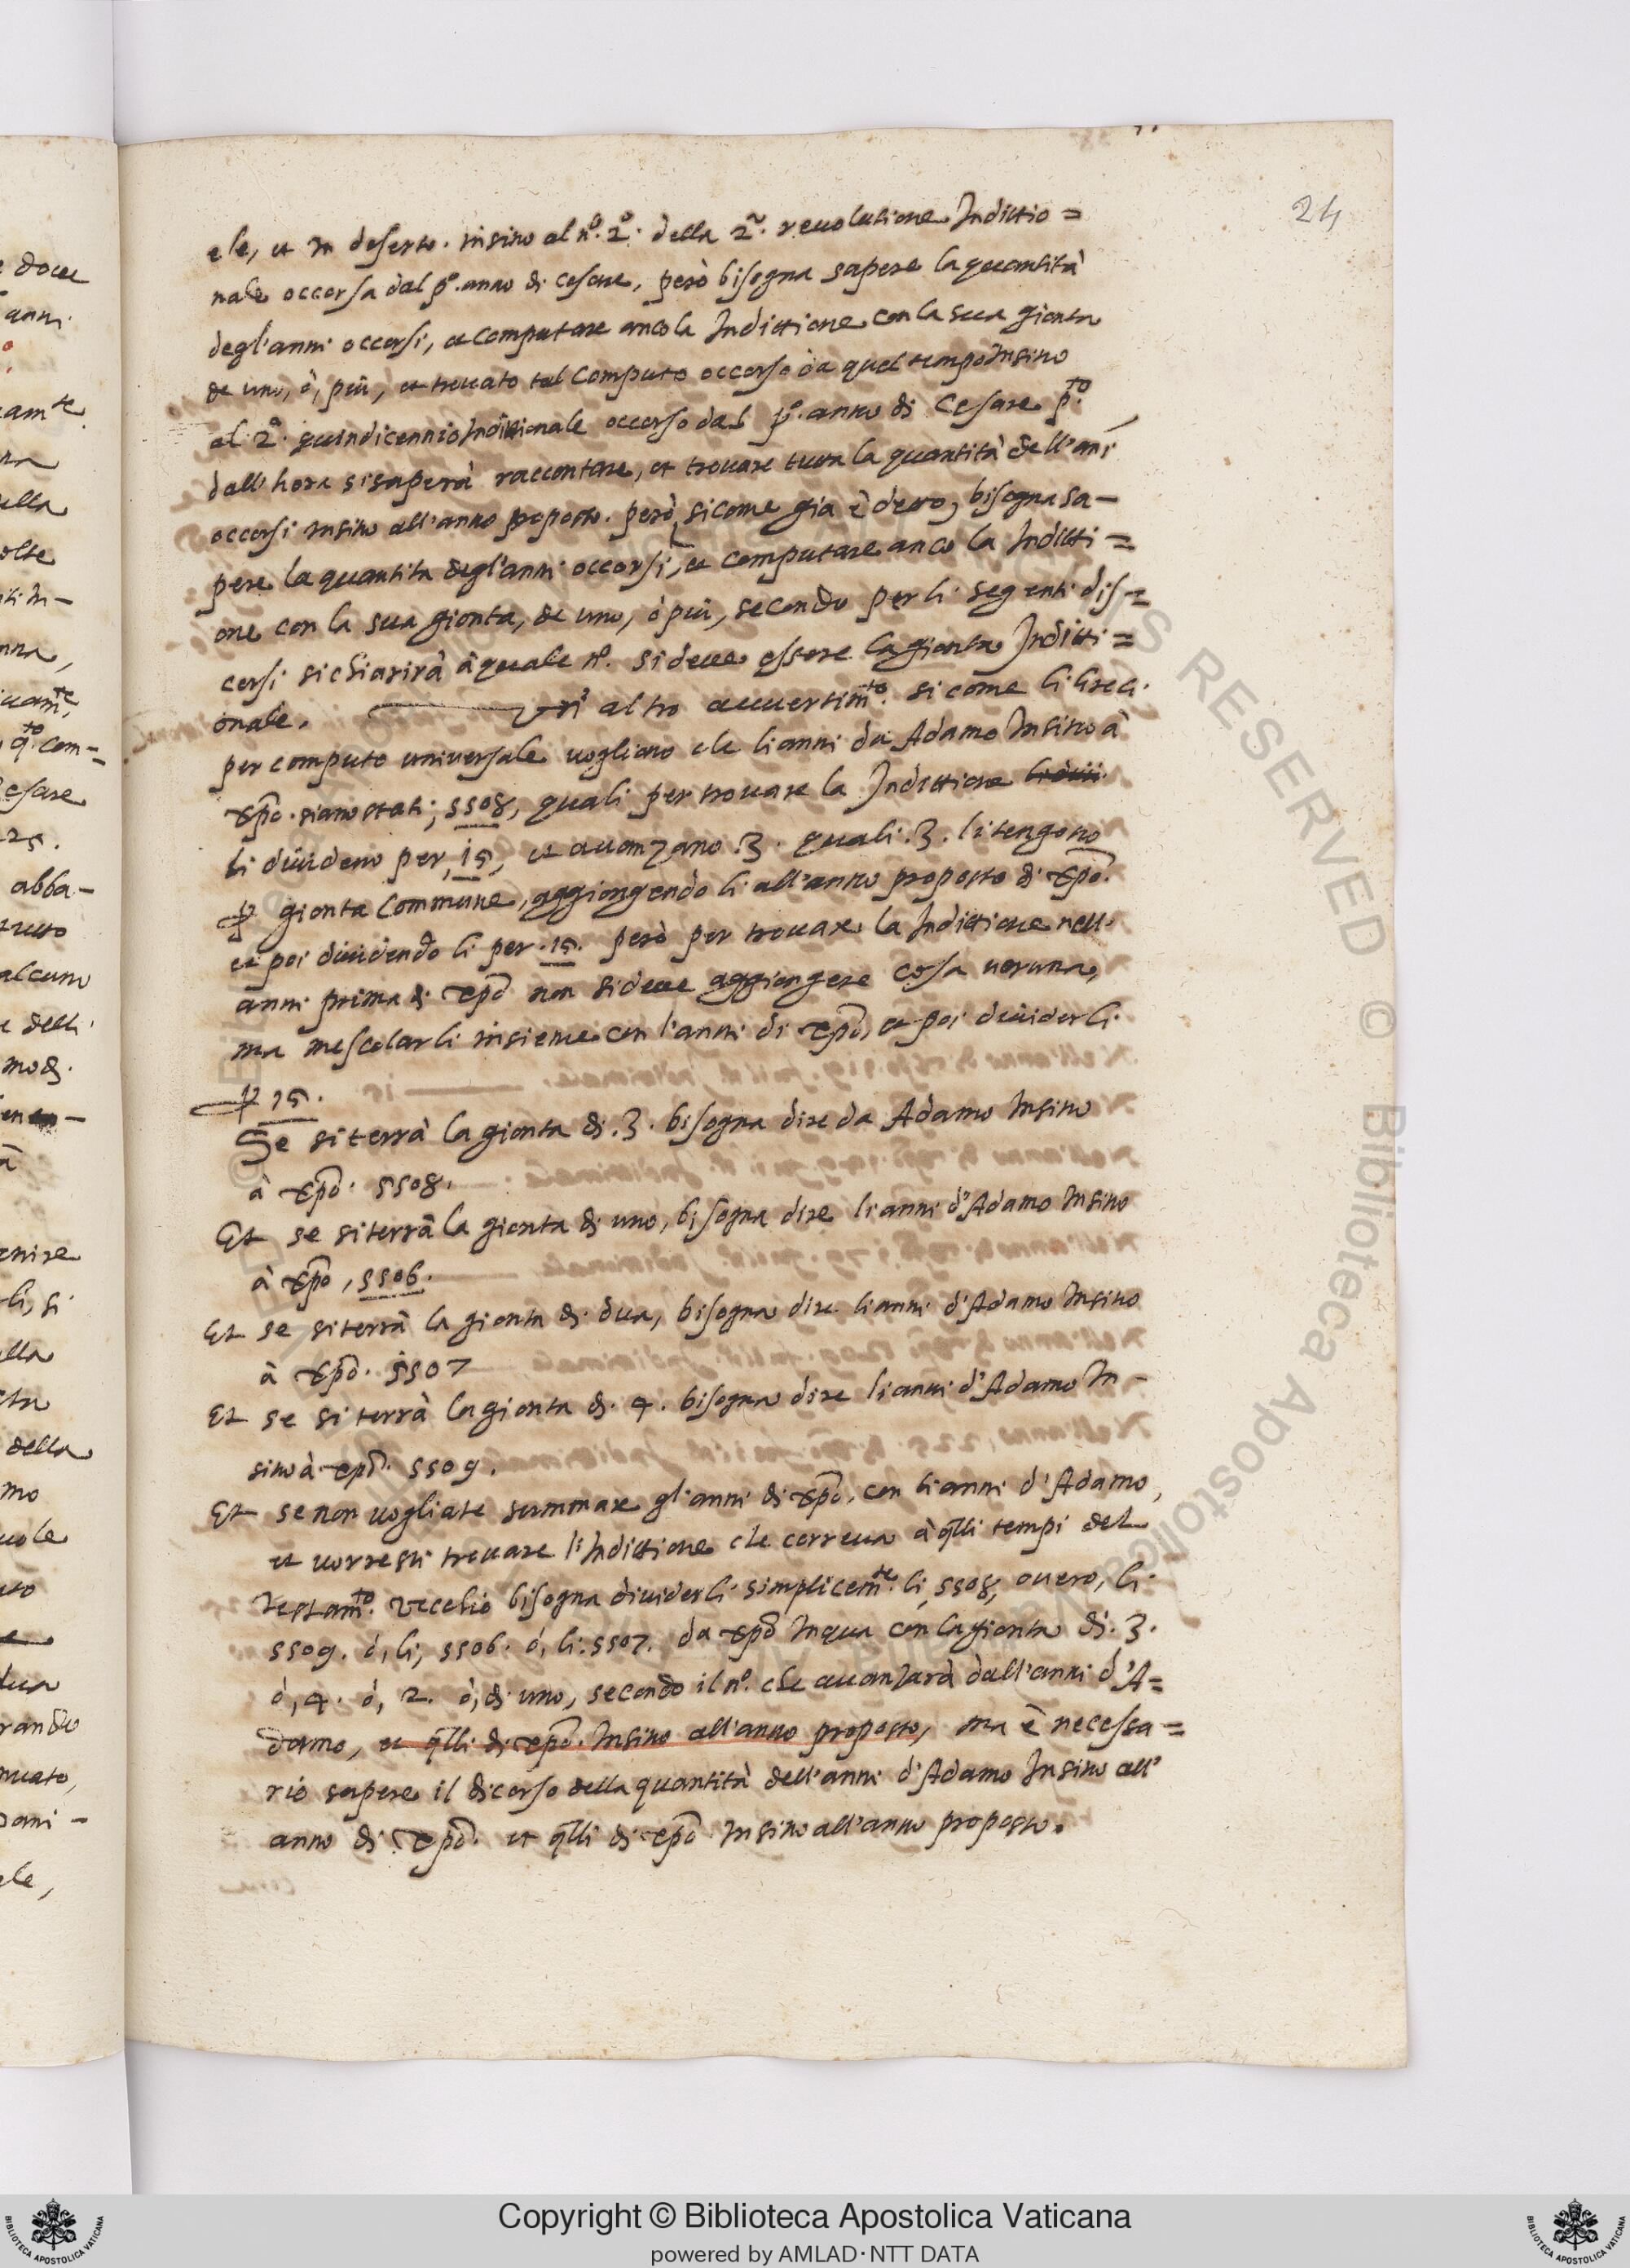 24
ele, et in deserto. insino al nº. 2º. della 2ª. reuolutione Indittio=
nale occorsa dal pº. anno di cesare, però bisogna sapere la quantità
degl'anni occorsi, et computare anco la Indittione con la sua gionta
de uno, ò, più, et trouato tal computo occorso da quel tempo Insino
al 2º. quindicennio Indittionale occorso dal pº. anno di Cesare p.to
dall'hora si saperà raccontare, et trouare tutta la quantità dell'ani
occorsi insino all'anno proposto. però, sicome gia è detto, bisogna sa-
pere la quantita degl'anni occorsi, et computare anco la Inditti=
one con la sua gionta, de uno, ò più, secondo per li segenti dis=
corsi si chiarirà à quale nº. si deue essere la gionta Inditti=
onale. Vn' altro auuertim.to si come li Greci
per computo uniuersale uogliono che li anni da Adamo Insino à
xpo. siano stati; 5508, quali per trouare la Indittione
li diuideno per, 15, et auanzano .3. quali .3. li tengono
p gionta commune, aggiongendo li all'anno proposto di xpo.
et poi diuidendo li per .15. però per trouare la Indittione nell'
anni prima di xpo non si deue aggiongere cosa ueruna,
ma mescolarli insieme con l'anni di xpo, et poi diuiderli
p 15.
Se si terrà la gionta di .3. bisogna dire da Adamo Insino
à xpo. 5508.
Et se si terrà la gionta di uno, bisogna dire li anni d'Adamo Insino
à xpo, 5506.
Et se si terrà la gionta di dua, bisogna dire li anni d'Adamo Insino
à xpo. 5507
Et se si terrà la gionta di .4. bisogna dire li anni d'Adamo In-
sino à xpo. 5509.
Et se non uogliate summare gl'anni di xpo, con li anni d'Adamo,
et uorresti trouare l'Indittione che correua à qlli tempi del
testam.to Vecchio bisogna diuiderli simplicem.te li, 5508, ouero, li
5509. ò, li, 5506. ò, li. 5507. da xpo In qua con la gionta di .3.
ò, 4. ò, 2. ò, di uno, secondo il nº. che auanzarà dall'anni d'A=
damo, et qlli di xpo. Insino all'anno proposto, ma è necessa=
rio sapere il dicorso della quantità dell'anni d'Adamo Insino all'
anno di xpo. et qlli di xpo Insino all'anno proposto.
Copyright © Biblioteca Apostolica Vaticana
powered by AMLAD·NTT DATA